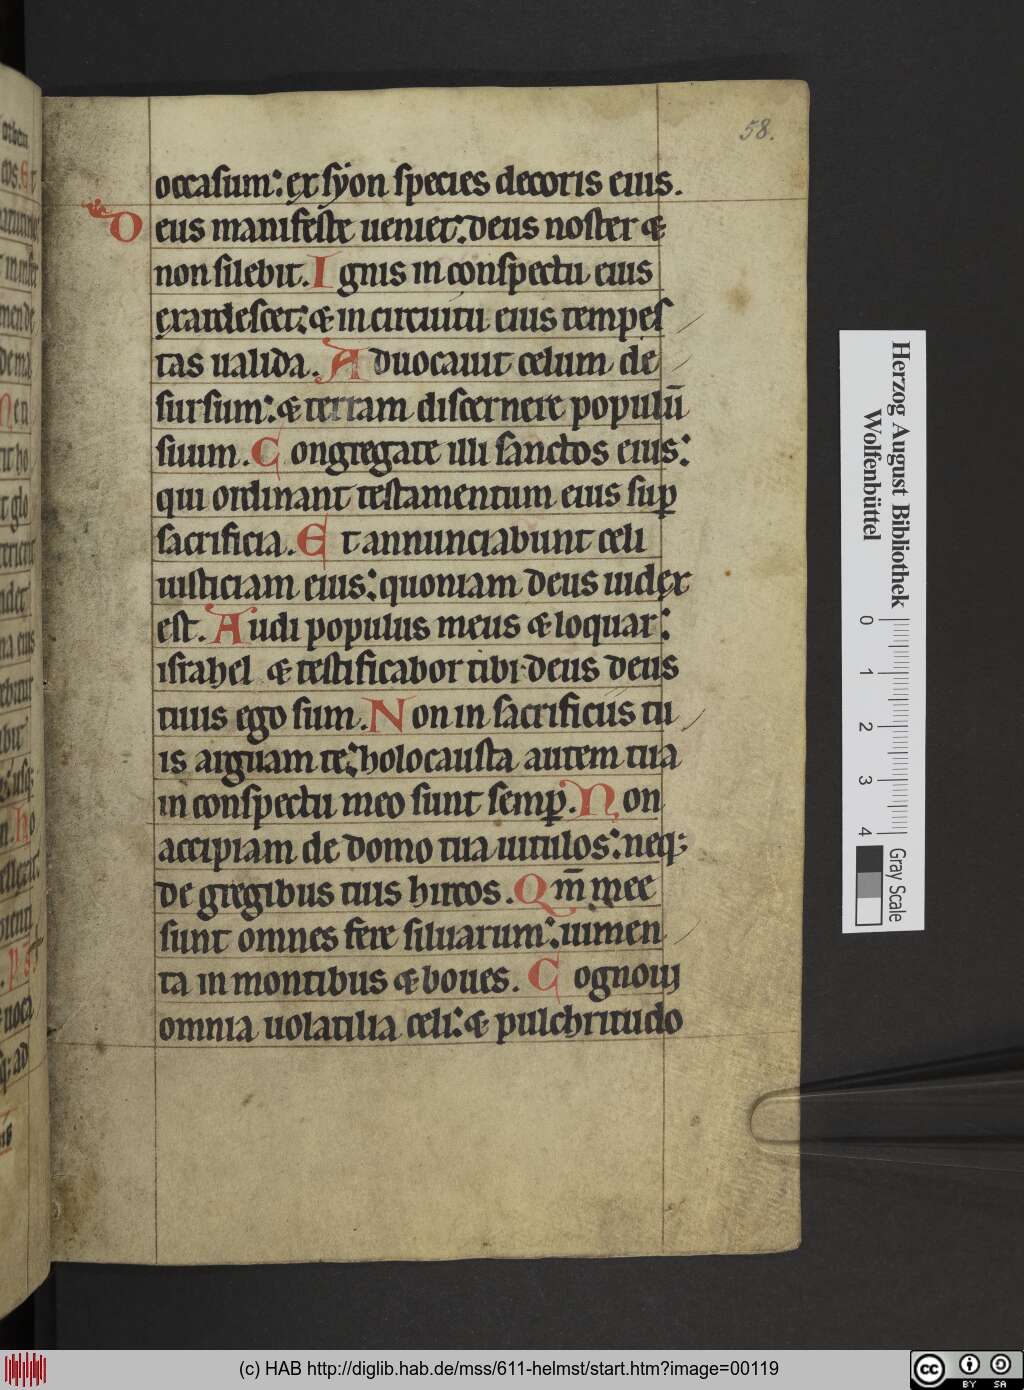 58.
occasum: ex syon species decoris eius.
Deus manifeste ueniet: deus noster &
non silebit. Ignis in conspectu eius
exardescet: & in circuitu eius tempes
tas ualida. Aduocauit celum de
sursum: & terram discernere populū
suum. Congregate illi sanctos eius:
qui ordinant testamentum eius sup
sacrificia. Et annunciabunt celi
iusticiam eius: quoniam deus iudex
est. Audi populus meus & loquar:
israhel & testificabor tibi deus deus
tuus ego sum. Non in sacrificiis tu
is arguam te: holocausta autem tua
in conspectu meo sunt semp. Non
accipiam de domo tua uitulos: neq;
de gregibus tuis hircos. Qm̄ mee
sunt omnes fere siluarum: iumen
ta in montibus & boues. Cognoui
omnia uolatilia celi: & pulchritudo
Herzog August Bibliothek
Wolfenbüttel
0 1 2 3 4
Gray Scale
(c) HAB http://diglib.hab.de/mss/611-helmst/start.htm?image=00119
cc BY SA